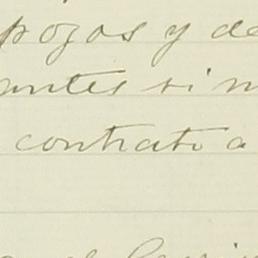 pozos y de
antes si n
contrato a